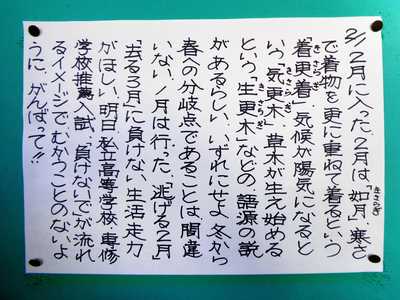 2/1 2月に入った。2月は、「如月」。寒さ
で着物を更に重ねて着るという
「着更着」。気候が陽気になると
いう「気更木」。草木が生え始める
という「生更木」などの語源の説
があるらしい。いずれにせよ、冬から
春への分岐点であることは、間違
いない。1月は行った。「逃げる2月」
「去る3月」に負けない、生活、走力
がほしい。明日、私立高等学校・専修
学校推薦入試。「負けない」でが流れ
るイメージで、むかうことのないよ
うに、がんばって!!
きさらぎ
きさらぎ
きさらぎ
きさらぎ